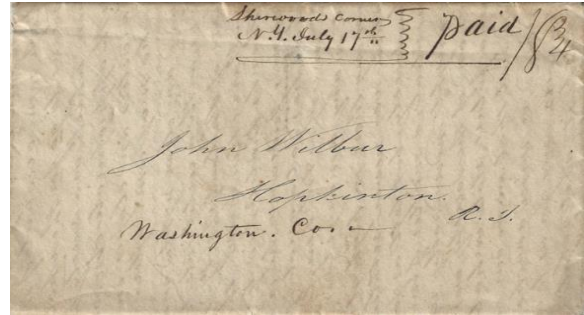 Sherwoods Corner
N.Y. July 17th
paid / 18 3/4
John Wilbur
Hopkinton.
R. I.
Washington. Co